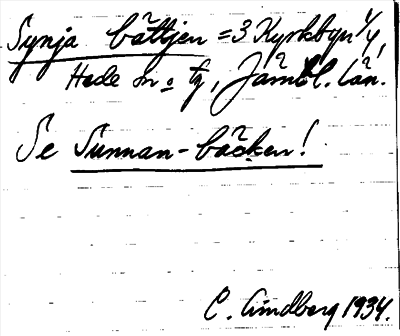 Synja bättjen = 3 Kyrkbyn 1/4,
Hede sn o tg, Jämtl. län.
Se Sunnan-bäcken!
C. Lindberg 1934.